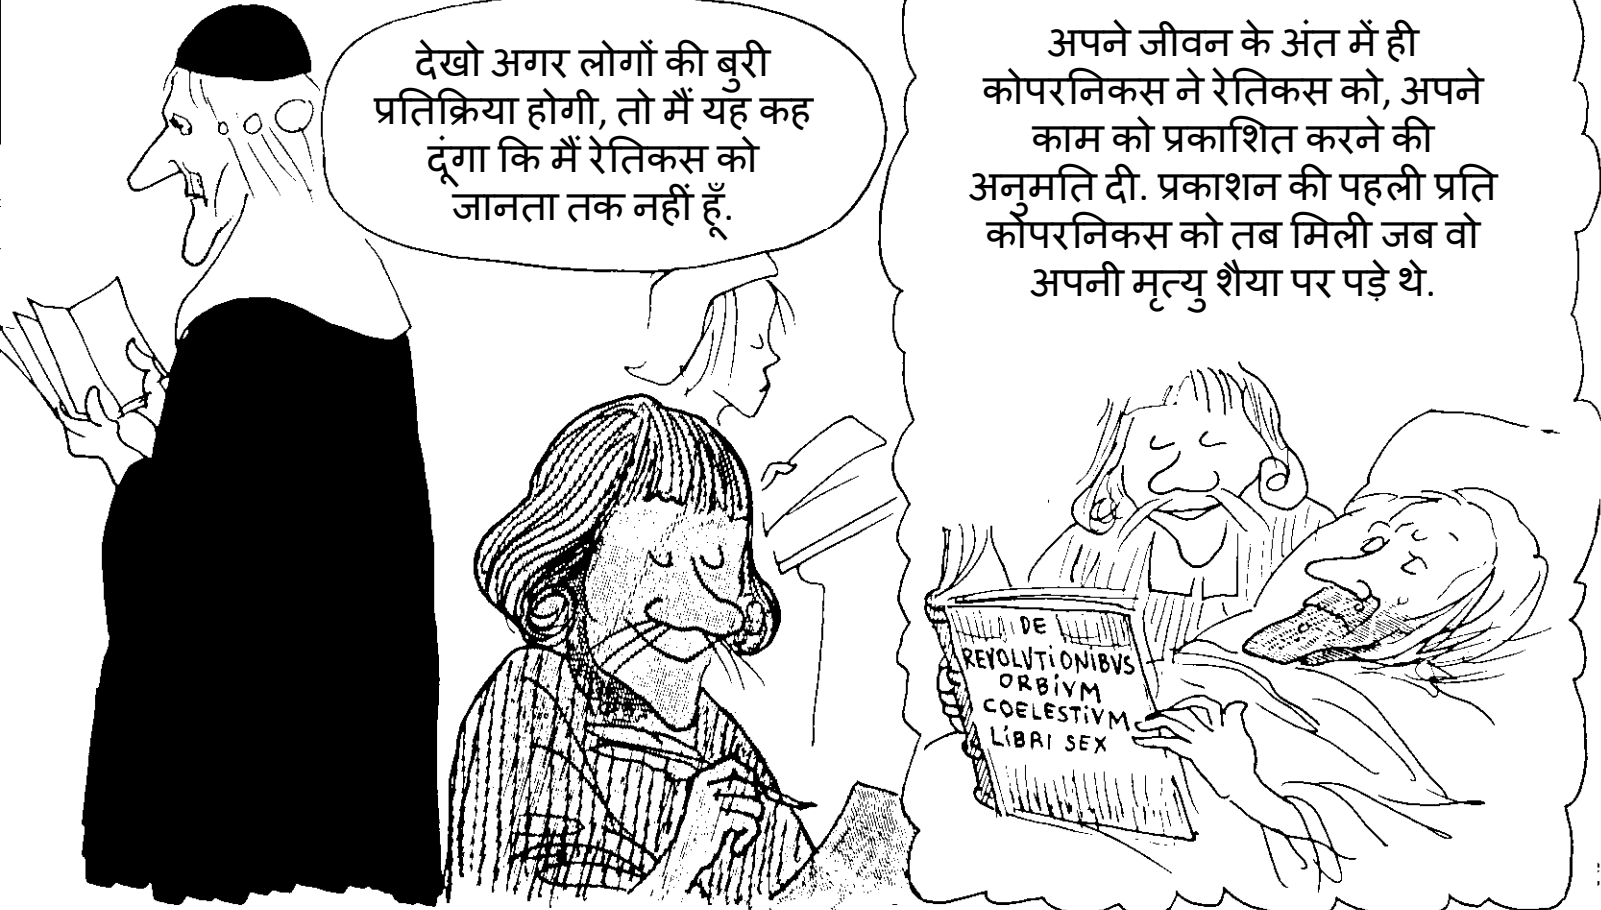 देखो अगर लोगों की बुरी
प्रतिक्रिया होगी, तो मैं यह कह
दूंगा कि मैं रेतिकस को
जानता तक नहीं हूँ.
अपने जीवन के अंत में ही
कोपरनिकस ने रेतिकस को, अपने
काम को प्रकाशित करने की
अनुमति दी. प्रकाशन की पहली प्रति
कोपरनिकस को तब मिली जब वो
अपनी मृत्यु शैया पर पड़े थे.
DE
REVOLUTiONIBVS
ORBiVM
COELESTiVM
LiBRI SEX